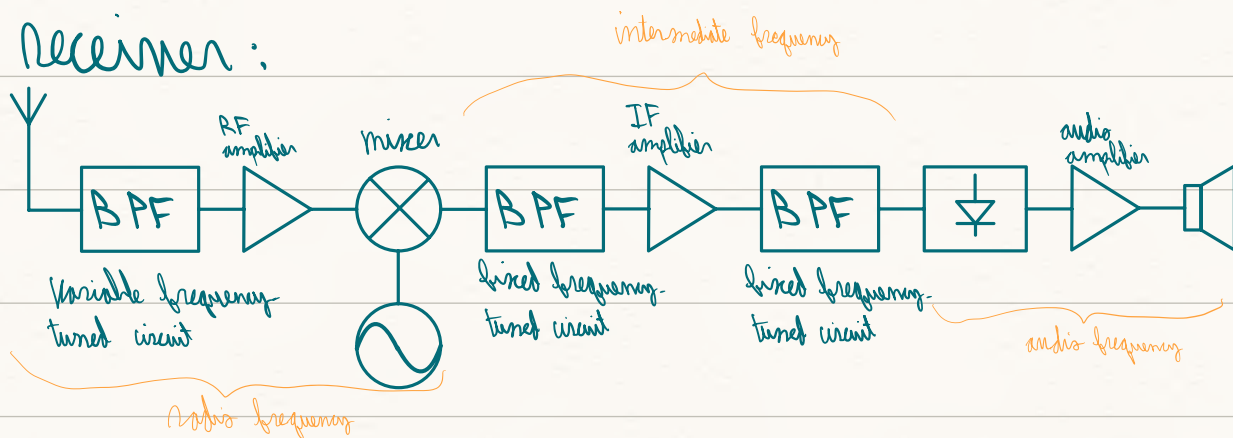 Receiver:
intermediate frequency
RF
amplifier
mixer
IF
amplifier
audio
amplifier
BPF
BPF
BPF
Variable frequency-
tuned circuit
fixed frequency-
tuned circuit
fixed frequency-
tuned circuit
audio frequency
radio frequency